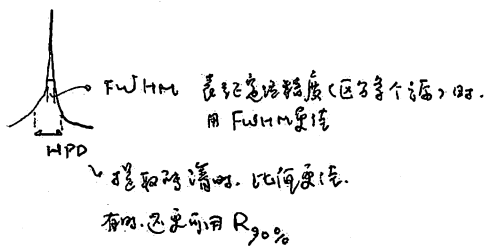 FWHM 表征定位精度(区分多个源)时.
用 FWHM更佳
HPD
提取时, 此值更佳.
有时还更可用 R90%